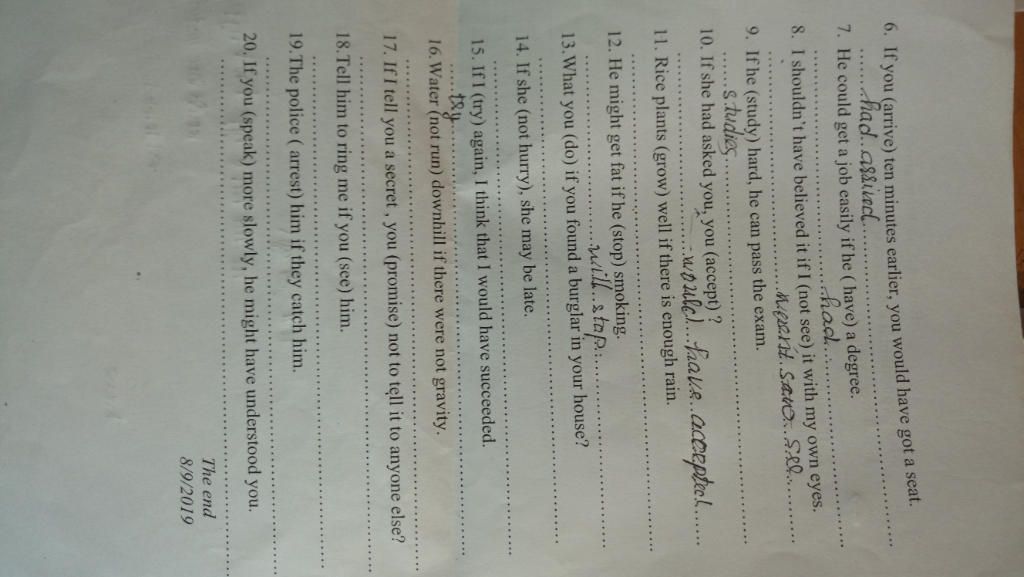 6. If you (arrive) ten minutes earlier, you would have got a seat.
........had assived........................................................
7. He could get a job easily if he ( have) a degree.
.....................................................had....................
8. I shouldn't have believed it if I (not see) it with my own eyes.
................................................ saw see.......
9. If he (study) hard, he can pass the exam.
......studies............................................................
10. If she had asked you, you (accept) ?
........................................would have accepted......
11. Rice plants (grow) well if there is enough rain.
................................................................................
12. He might get fat if he (stop) smoking.
........................................will stop..................
13.What you (do) if you found a burglar in your house?
................................................................................
14. If she (not hurry), she may be late.
................................................................................
15. If I (try) again, I think that I would have succeeded.
........try..................................................................
16. Water (not run) downhill if there were not gravity.
................................................................................
17. If I tell you a secret , you (promise) not to tell it to anyone else?
................................................................................
18.Tell him to ring me if you (see) him.
................................................................................
19.The police ( arrest) him if they catch him.
................................................................................
20. If you (speak) more slowly, he might have understood you.
................................................................................
The end
8/9/2019